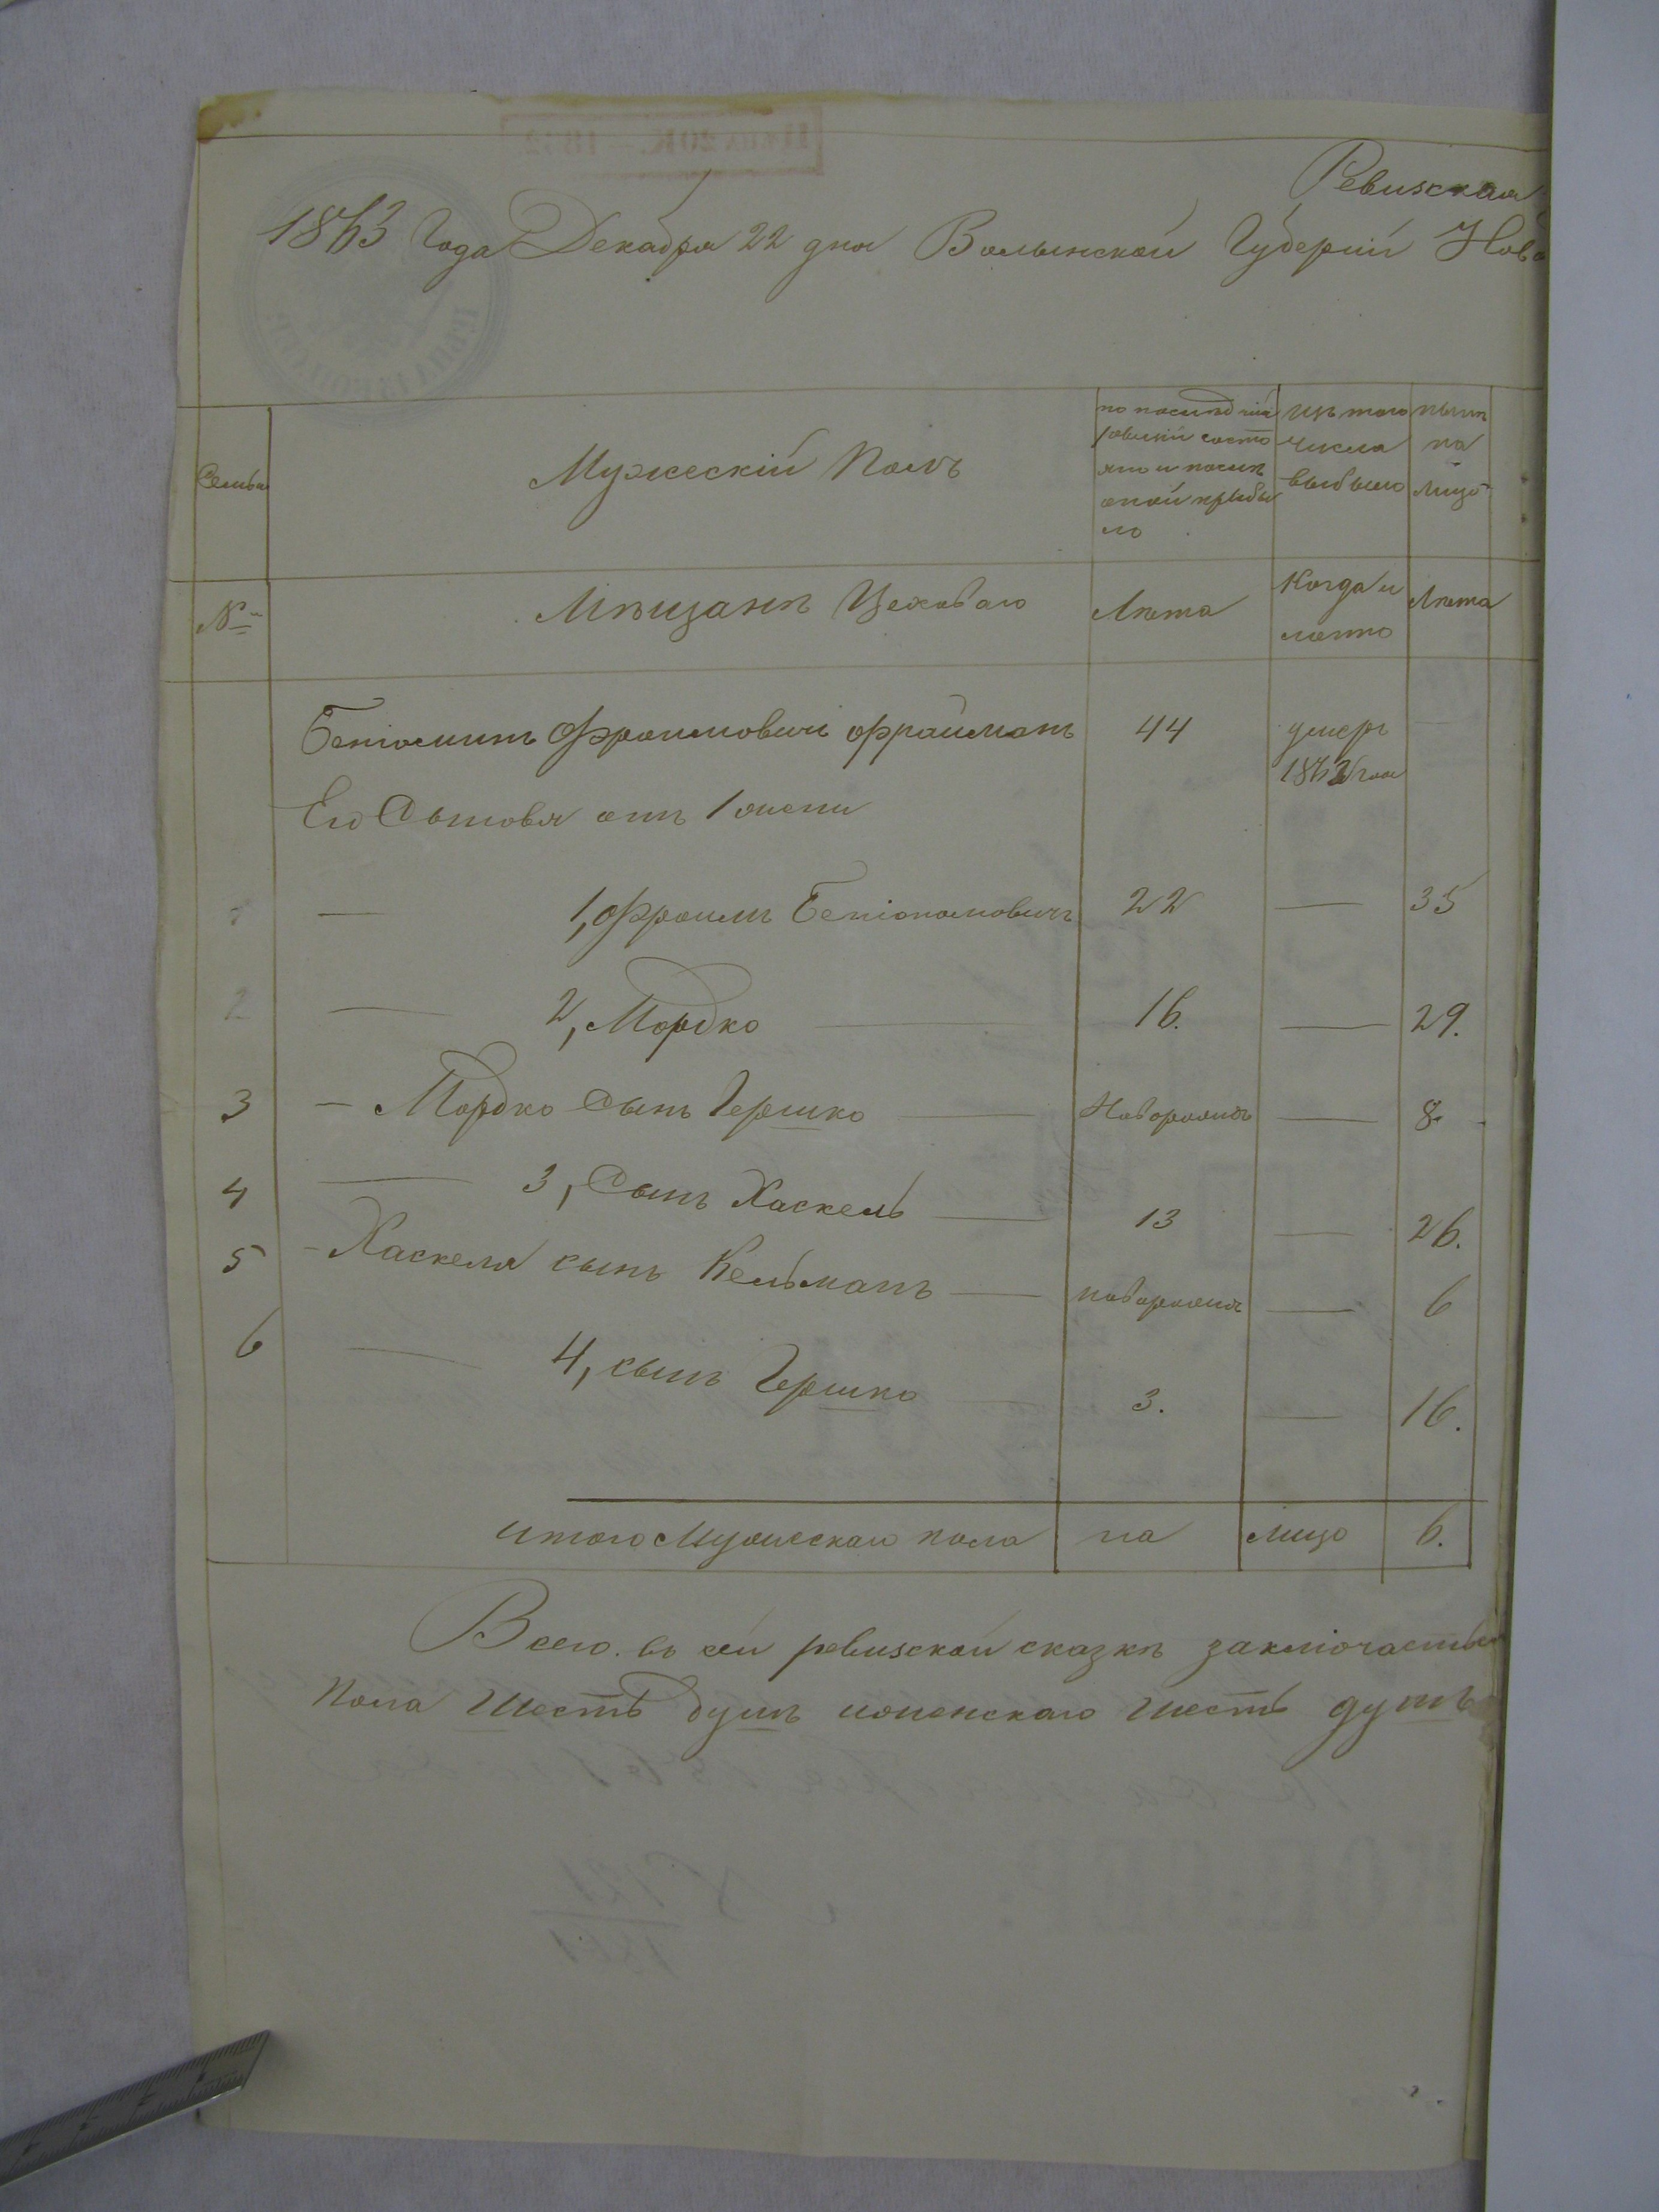 Ревизская
1863 Года Декабря 22 дня Волынской Губерніи Ново
Семьи
Мужескій Полъ
по последній
ревизіи состо
яло и послѣ
оной прибы
ло
изъ того
числа
выбыло
нынѣ
на
лицо
№
Мѣщанъ Цеховаго
Лѣта
Когда и
Лѣта
Беніоминъ Фроимовичъ Фрайманъ 44 умеръ —
1862 года
Его Сыновя отъ 1 жены
1 — 1, Фроимъ Беніоминовичъ 22 — 35
2 — 2, Мордко — 16. — 29.
3 — Мордко Сынъ Гершко — Новорожд — 8.
4 — 3, Сынъ Хаскель — 13 — 26.
5 — Хаскеля сынъ Кельманъ — новорожд — 6
6 — 4, сынъ Гершко — 3. — 16.
итого Мужескаго пола на лицо 6.
Всего въ сей ревизской сказкѣ заключается
Пола шесть душъ иженскаго шесть душъ